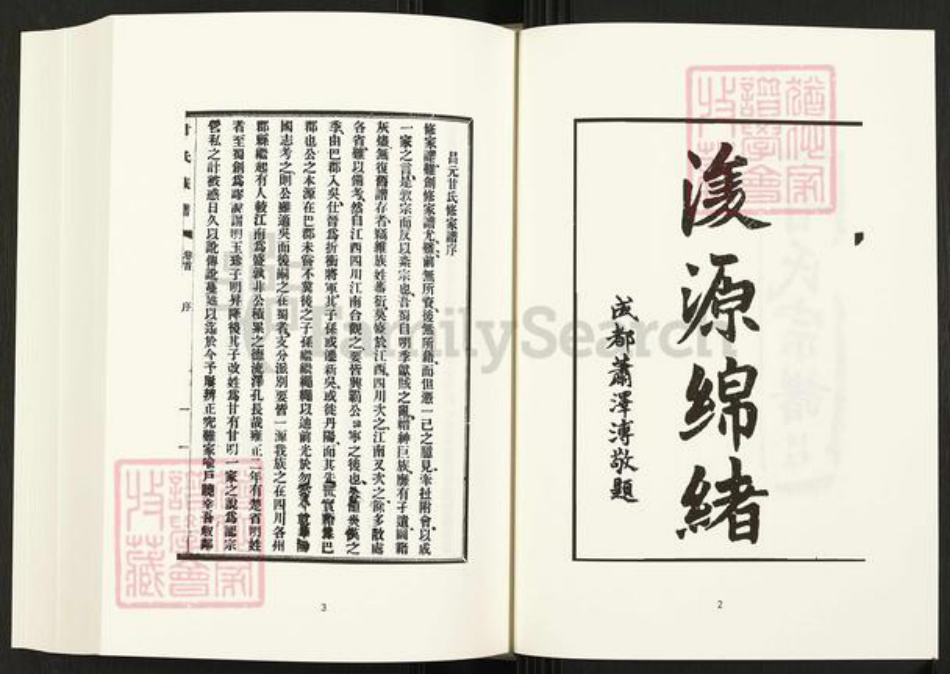 浚源綿緒
成都蕭澤溥敬題
2
昌元甘氏修家譜序
修家譜難創修家譜尤難前無所資後無所藉而但憑一己之臆見牽扯附會以成
一家之言是敦宗而反以紊宗也吾蜀自明季獻賊之亂縉紳巨族靡有孑遺圖籍
灰燼無復舊譜存者竊維族姓蕃衍莫盛於江西四川次之江南又次之餘多散處
各省難以備考然自江西四川江南合觀之要皆興霸公寧之後也
季由巴郡入吳仕晉爲折衝將軍其子孫或遷新吳或徙丹陽而其先世實
巴
郡也公之本源在巴郡未嘗不冀後之子孫繼繼繩繩以迪前光於勿
國志考之則公雖適吳而後嗣之在蜀者支分派別要皆一源我族之在四川各州
郡縣繼起有人較江南爲盛孰非公積累之德流澤孔長哉雍正二年有楚省明姓
者至蜀創爲謬說謂明玉珍子明昇降後其子改姓爲甘有甘明一家之說爲認宗
營私之計被惑日久以訛傳訛蔓延以迄於今予屢辨正究難家喻戶聽幸吾叔鄰
甘氏族譜 卷首 序 一
3
譜學會
收藏
FamilySearch